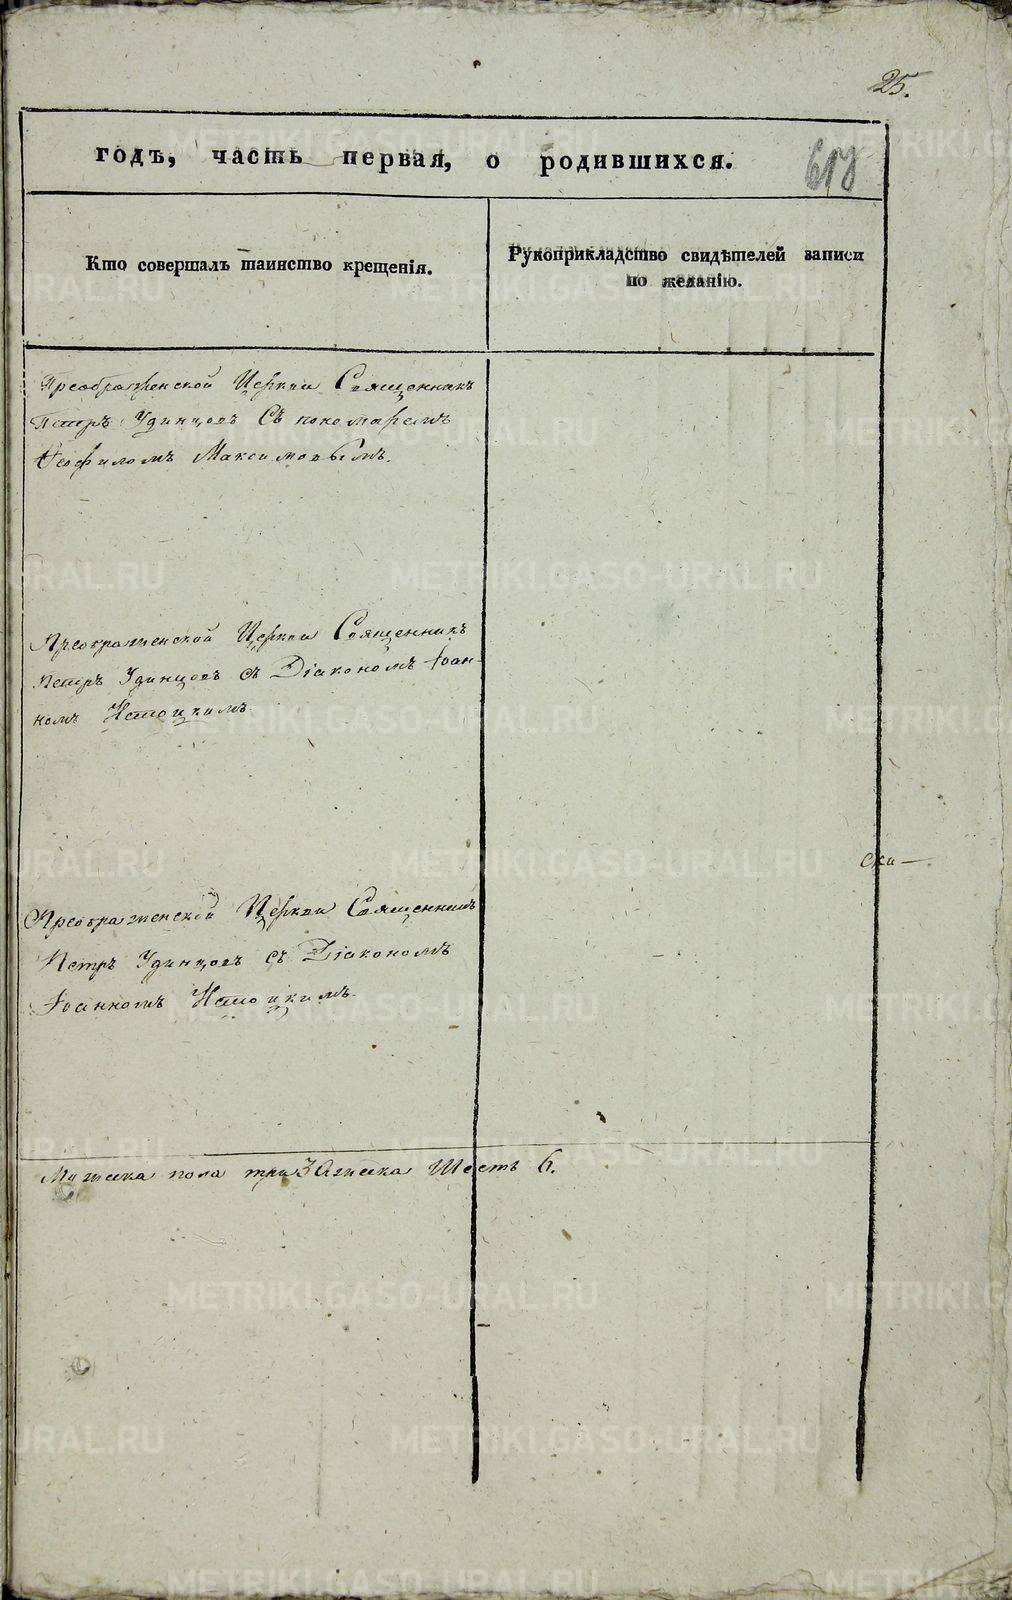 25.
годъ, часть первая, о родившихся.
617
Кто совершалъ таинство крещенія.
Рукоприкладство свидѣтелей записи
по желанію.
Преображенской Церкви Священникъ
Петръ Удинцовъ Съ пономаремъ
Ѳеофиломъ Максимовымъ.
Преображенской Церкви Священникъ
Петръ Удинцовъ съ Діакономъ Іоан-
номъ Истоцкимъ.
Преображенской Церкви Священникъ
Петръ Удинцовъ съ Діакономъ
Іоанномъ Истоцкимъ.
Мужеска пола три 3 Женска Шесть 6.
METRIKI.GASO-URAL.RU